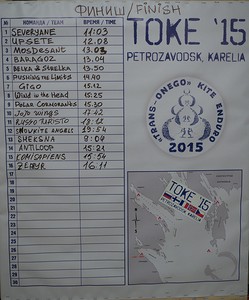 ФИНИШ/FINISH
№ КОМАНДА / TEAM ВРЕМЯ / TIME
1 SEVERYANE 11:03
2 UPSETE 12.08
3 MOSDESANT 13.08
4 BARAGOZ 13.04
5 BELKA & STRELKA 13.50
6 PUSHING THE LIMITS 14.40
7 GIGO 15.12
8 Wind in the Head 15.25
9 POLAR CORMORANTS 15.30
10 JOJO WINGS 17.42
11 RUSSO TURISTO
12 SNOWKITE ANGELS 19:54
13 SHEKSNA
14 ANTILOOP 15:21
15 KONISAPIENS 15:54
16 ZEPHYR 16.11
17
18
19
20
21
22
23
24
25
26
27
28
29
30
TOKE '15
PETROZAVODSK, KARELIA
«TRANS-ONEGO» KITE ENDURO
2015
TOKE '15
PETROZAVODSK, KARELIA